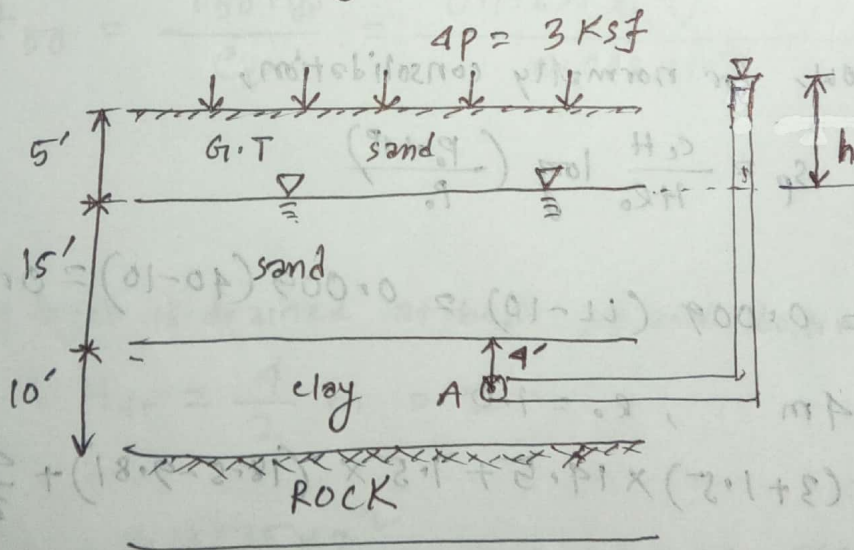 ΔP = 3 Ksf
5'
G.T
sand
h
15'
sand
4'
10'
clay
A
ROCK